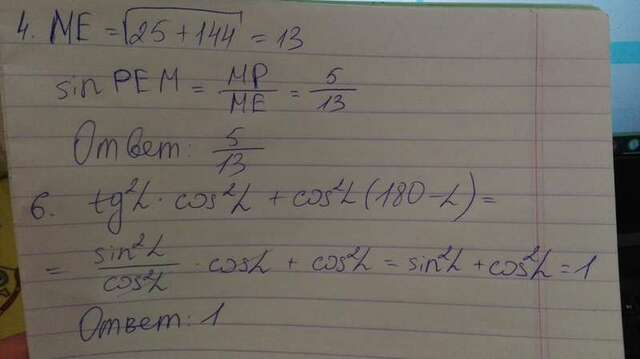 4. ME = √25 + 144 = 13
sin PEM = MP/ME = 5/13
Ответ: 5/13
6. tg²α · cos²α + cos²α (180 - α) =
= sin²α/cos²α · cosα + cos²α = sin²α + cos²α = 1
Ответ: 1